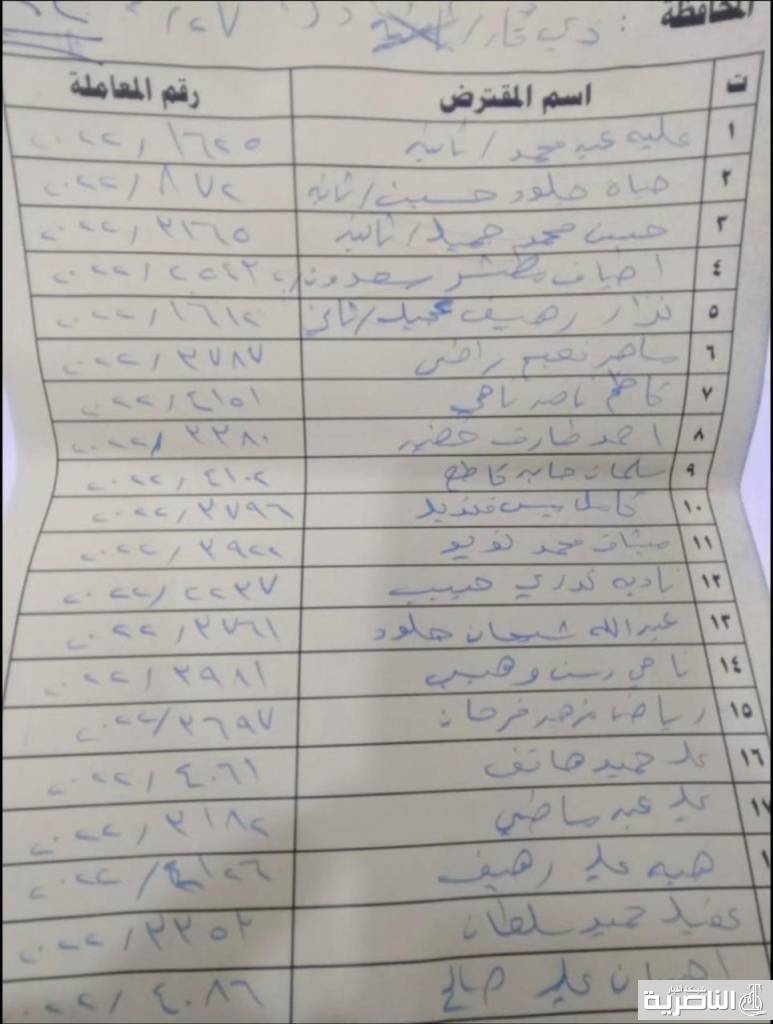 المحافظة : ذي قار /
ت اسم المقترض رقم المعاملة
١ عليه عبد محمد / ثانية ١٦٢٥ / ٢٠٢٢
٢ حياة جلود حسين / ثانية ٨٧٢ / ٢٠٢٢
٣ حسن محمد حميد / ثانية ٣١٦٥ / ٢٠٢٢
٤ مطشر سعدون ٢٥٤٣ / ٢٠٢٢
٥ نزار رهيف ١٦١٢ / ٢٠٢٢
٦ ساهر نعيم راضي ٣٧٨٧ / ٢٠٢٢
٧ كاظم ناصر ناجي ٤١٥١ / ٢٠٢٢
٨ احمد طارق خضير ٣٣٨٠ / ٢٠٢٢
٩ سلمان جابر كاطع ٤١٠٢ / ٢٠٢٢
١٠ كامل ٣٧٩٦ / ٢٠٢٢
١١ ميثاق محمد ٣٩٢٢ / ٢٠٢٢
١٢ نادية نوري حبيب ٢٢٣٧ / ٢٠٢٢
١٣ عبدالله شيحان جلود ٣٧٦١ / ٢٠٢٢
١٤ ناجي رسن وهيب ٣٩٨١ / ٢٠٢٢
١٥ رياض نزهير فرحان ٣٦٩٧ / ٢٠٢٢
١٦ علي حميد هاتف ٤٠٦١ / ٢٠٢٢
١٧ علي عبد ماضي ٣١٨٢ / ٢٠٢٢
١ هبه علي رهيف ٤١٢٦ / ٢٠٢٢
عقيل حميد سلطان ٣٣٥٢ / ٢٠٢٢
احسان علي صالح ٤٠٨٦ / ٢٠٢٢
شبكة اخبار
الناصرية